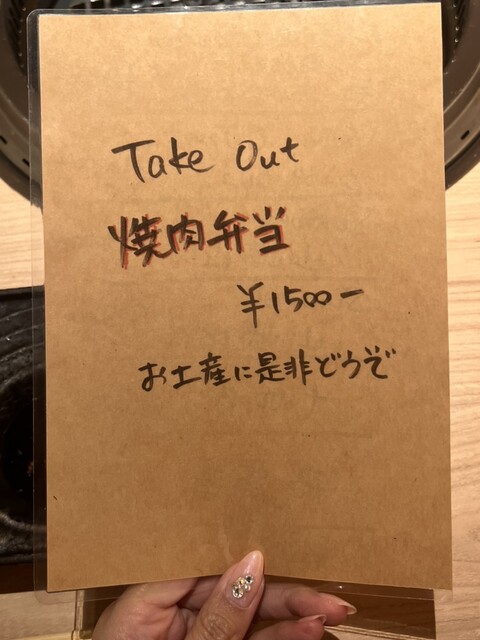 Take Out
焼肉弁当
¥1500ー
お土産に是非どうぞ